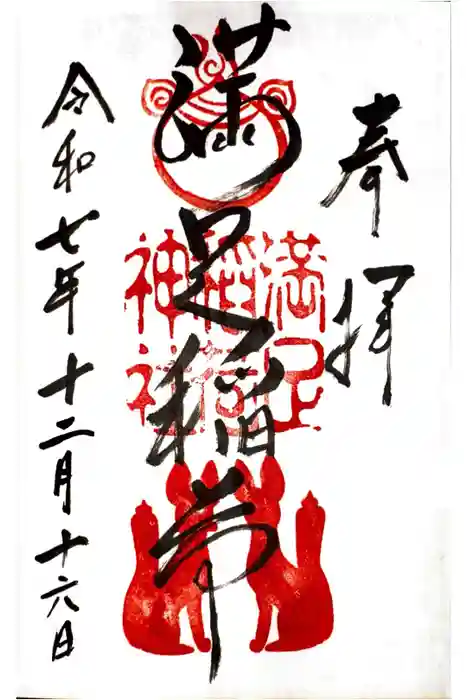 奉拝
満足稲荷
満足
稲荷
神社
令和七年十二月十六日